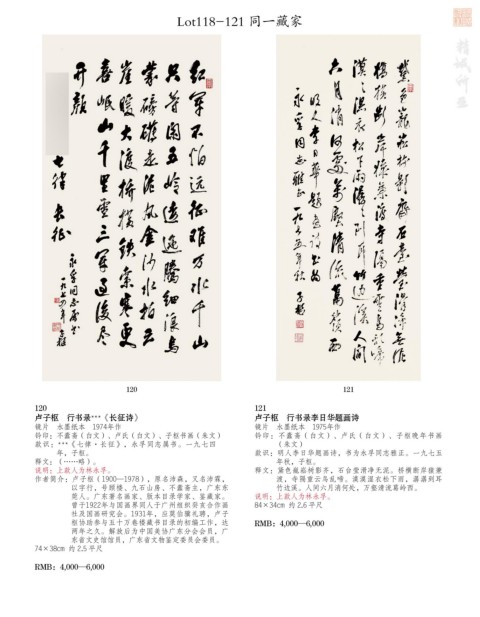 Lot118-121 同一藏家
精诚所至
红军不怕远征难万水千山
只等闲五岭逶迤腾细浪乌
蒙磅礴走泥丸金沙水拍云
崖暖大渡桥横铁索寒更
喜岷山千里雪三军过后尽
开颜
七律 长征
永孚同志属书
一九七四年 子枢
六月清何处万壑清流万岭西
明人李日华题画诗书为
永孚同志雅正一九七五年秋 子枢
120
121
120
卢子枢 行书录***《长征诗》
镜片 水墨纸本 1974年作
钤印:不蠹斋(白文)、卢氏(白文)、子枢书画(朱文)
款识:***《七律·长征》,永孚同志属书。一九七四
年,子枢。
释文:(……略)。
说明:上款人为林永孚。
作者简介:卢子枢(1900—1978),原名沛霖,又名沛霖,
以字行,号顾楼、九石山房、不蠹斋主,广东东
莞人。广东著名画家、版本目录学家、鉴藏家。
曾于1922年与国画界同人于广州组织癸亥合作画
社及国画研究会。1931年,应莫伯骥礼聘,卢子
枢协助参与五十万卷楼藏书目录的初编工作,达
两年之久。解放后为中国美协广东分会会员,广
东省文史馆馆员,广东省文物鉴定委员会委员。
74×38cm 约2.5平尺
RMB: 4,000—6,000
121
卢子枢 行书录李日华题画诗
镜片 水墨纸本 1975年作
钤印:不蠹斋(白文)、卢氏(白文)、子枢晚年书画
(朱文)
款识:明人李日华题画诗,书为永孚同志雅正。一九七五
年秋,子枢。
释文:黛色巃嵷树影齐,石台莹滑净无泥。桥横断岸猿兼
渡,寺隔重云鸟乱啼。漠漠湿衣松下雨,潺潺列耳
竹边溪。人间六月清何处,万壑清流万岭西。
说明:上款人为林永孚。
84×34cm 约2.6平尺
RMB: 4,000—6,000